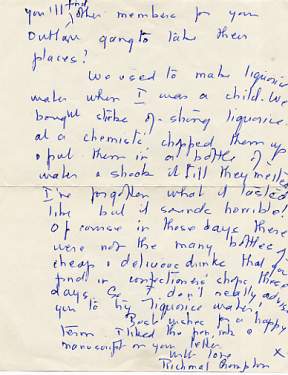 you'll find other members for your
Outlaw gang to take their
places?
We used to make liquorice
water when I was a child. We
bought sticks of strong liquorice
at a chemist's, chopped them up
& put them in a bottle of
water & shook it till they melted
I've forgotten what it tasted
like but it sounds horrible!
Of course in those days there
were not the many bottles of
cheap & delicious drinks that you
find in confectioners' shops these
days. So I don't really advise
you to try liquorice water!
Best wishes for a happy
term I liked the pen, ink &
manuscript on your letter
With love x
Richmal Crompton